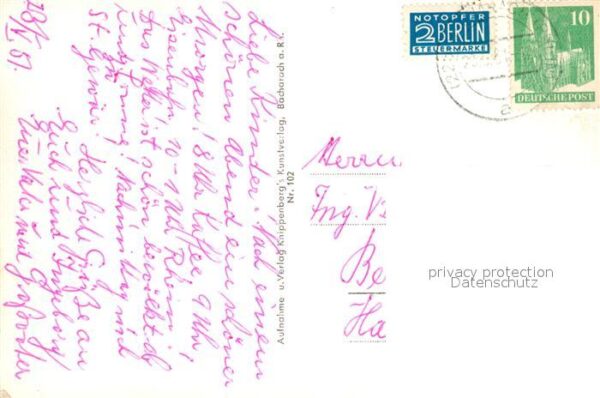 28/V 51
Liebe Kinder! Nach einem
schönen Abend ein schöner
Morgen! 8 Uhr Kaffee 9 Uhr
Eisenbahn 10-1 Uhr Rhein!
Das Wetter ist schön bewölkt
Nachmittag nach
St. Goar.
Herzliche Grüße an
Euch und Ingeborg
Euer Vater und Großvater
Aufnahme u. Verlag Knippenberg's Kunstverlag, Bacharach a. Rh.
Nr. 102
NOTOPFER
2 BERLIN
STEUERMARKE
10
DEUTSCHE POST
Herrn
Ing. V
Be
Ha
privacy protection
Datenschutz